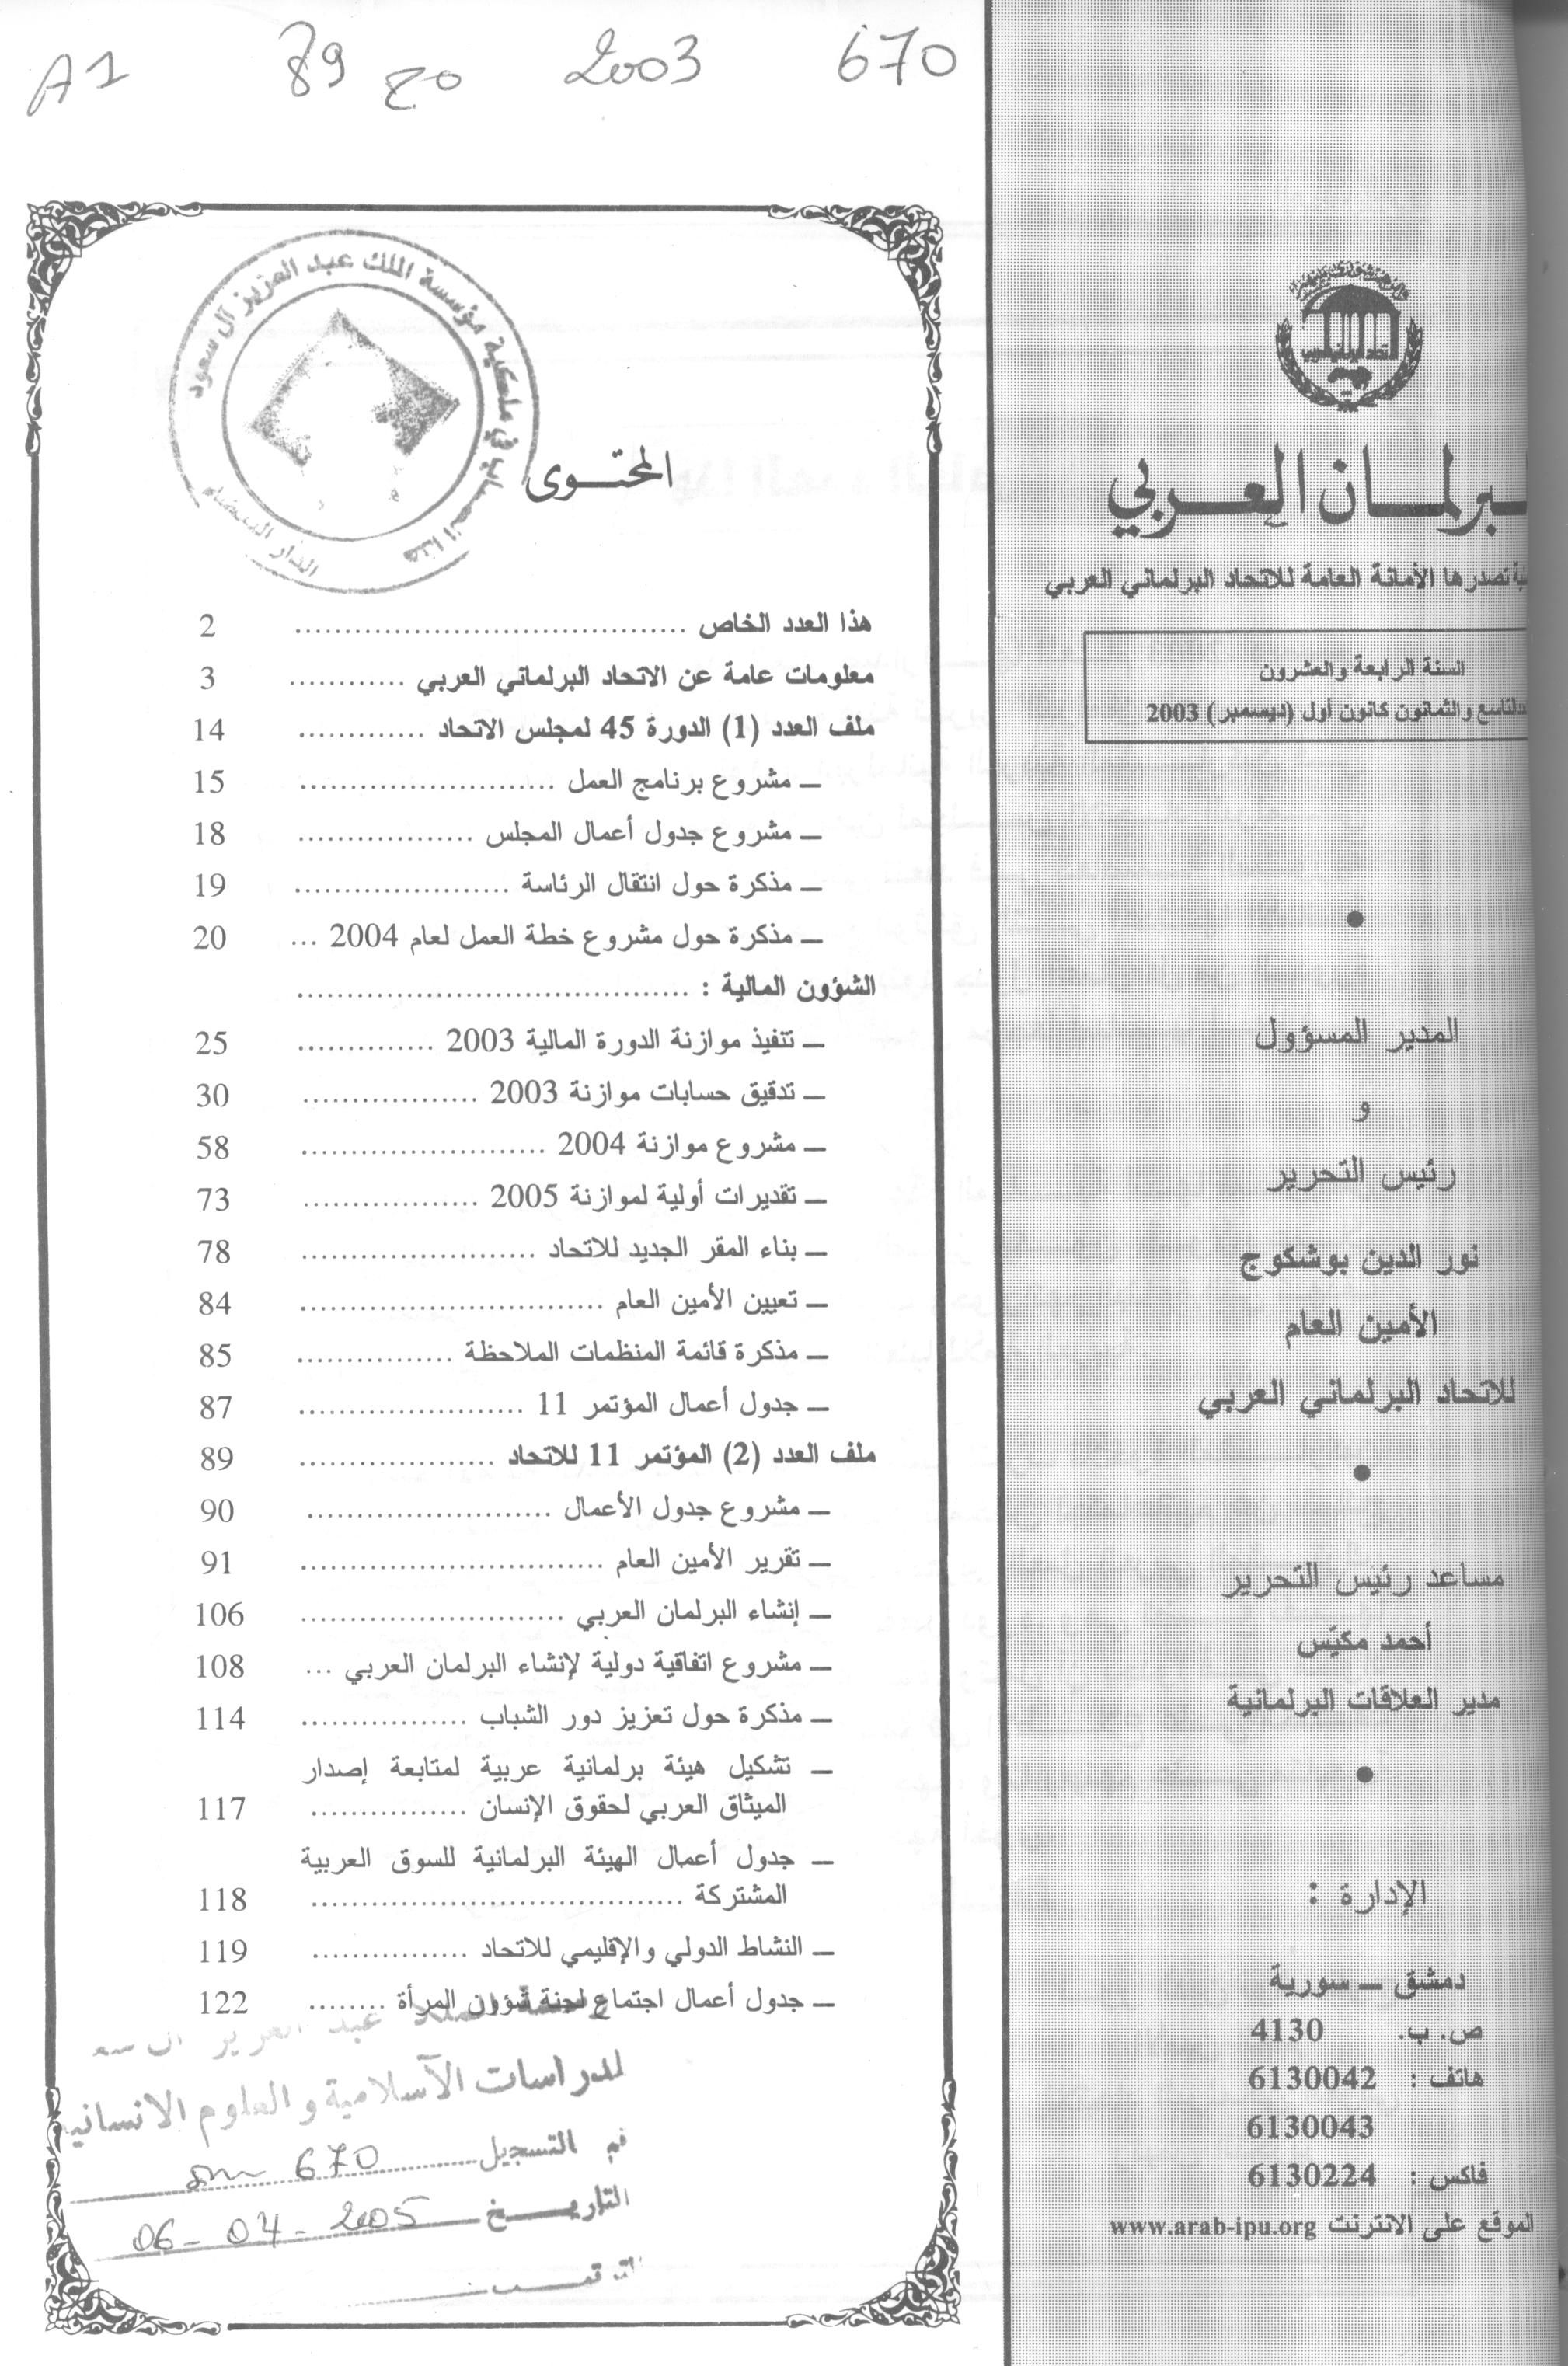 A1 89 ع0 2003 670
البرلمان العربي
تصدرها الأمانة العامة للاتحاد البرلماني العربي
السنة الرابعة والعشرون
التاسع والثمانون كانون أول (ديسمبر) 2003
المدير المسؤول
و
رئيس التحرير
نور الدين بوشكوج
الأمين العام
للاتحاد البرلماني العربي
مساعد رئيس التحرير
أحمد مكيّس
مدير العلاقات البرلمانية
الإدارة :
دمشق ــ سورية
ص. ب. 4130
هاتف : 6130042
6130043
فاكس : 6130224
الموقع على الانترنت www.arab-ipu.org
هذا الكتاب في ملكية مؤسسة الملك عبد العزيز آل سعود
الدار البيضاء
المحتوى
هذا العدد الخاص ....................................... 2
معلومات عامة عن الاتحاد البرلماني العربي ............ 3
ملف العدد (1) الدورة 45 لمجلس الاتحاد ............. 14
ــ مشروع برنامج العمل .......................... 15
ــ مشروع جدول أعمال المجلس .................. 18
ــ مذكرة حول انتقال الرئاسة ...................... 19
ــ مذكرة حول مشروع خطة العمل لعام 2004 ... 20
الشؤون المالية : .......................................
ــ تنفيذ موازنة الدورة المالية 2003 .............. 25
ــ تدقيق حسابات موازنة 2003 .................. 30
ــ مشروع موازنة 2004 ......................... 58
ــ تقديرات أولية لموازنة 2005 .................. 73
ــ بناء المقر الجديد للاتحاد ........................ 78
ــ تعيين الأمين العام ............................... 84
ــ مذكرة قائمة المنظمات الملاحظة ................ 85
ــ جدول أعمال المؤتمر 11 ....................... 87
ملف العدد (2) المؤتمر 11 للاتحاد .................... 89
ــ مشروع جدول الأعمال ......................... 90
ــ تقرير الأمين العام ............................... 91
ــ إنشاء البرلمان العربي ........................... 106
ــ مشروع اتفاقية دولية لإنشاء البرلمان العربي ... 108
ــ مذكرة حول تعزيز دور الشباب ................. 114
ــ تشكيل هيئة برلمانية عربية لمتابعة إصدار
الميثاق العربي لحقوق الإنسان ................ 117
ــ جدول أعمال الهيئة البرلمانية للسوق العربية
المشتركة ................................... 118
ــ النشاط الدولي والإقليمي للاتحاد ................ 119
ــ جدول أعمال اجتماع لجنة شؤون المرأة ........ 122
عبد العزيز آل سعـ
للدراسات الآسلامية والعلوم الانسانية
رقم التسجيل 670
التاريخ 06-04-2005